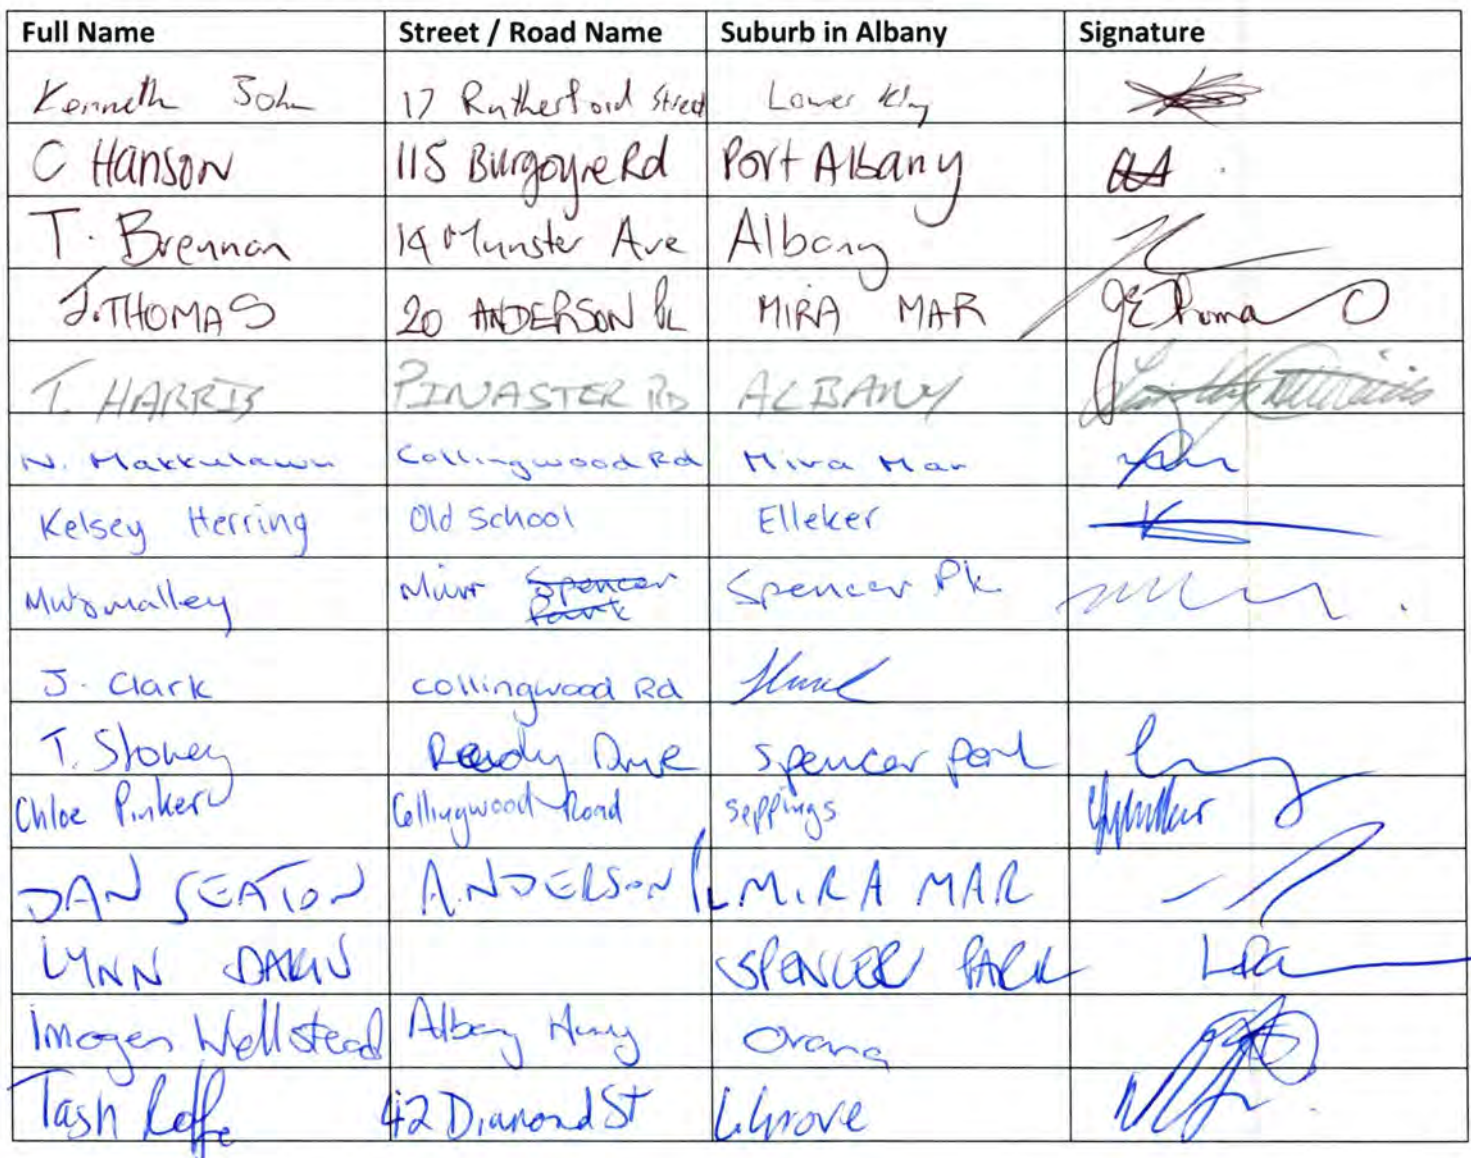 Full Name Street / Road Name Suburb in Albany Signature
Kenneth John 17 Rutherford Street Lower King
C Hanson 115 Burgoyne Rd Port Albany
T. Brennan 14 Munster Ave Albany
J. THOMAS 20 ANDERSON PL MIRA MAR JEThomas
T. HARRIS PINASTER RD ALBANY
N. Collingwood Rd Mira Mar
Kelsey Herring Old School Elleker
Muir Spencer Park Spencer Pk
J. Clark Collingwood Rd
T. Stoney Drive Spencer Park
Chloe Pinker Collingwood Road Seppings
DAN SEATON ANDERSON PL MIRA MAR
LYNN DAKIN SPENCER PARK
Imogen Wellstead Albany Hwy Orana
Tash 42 Diamond St